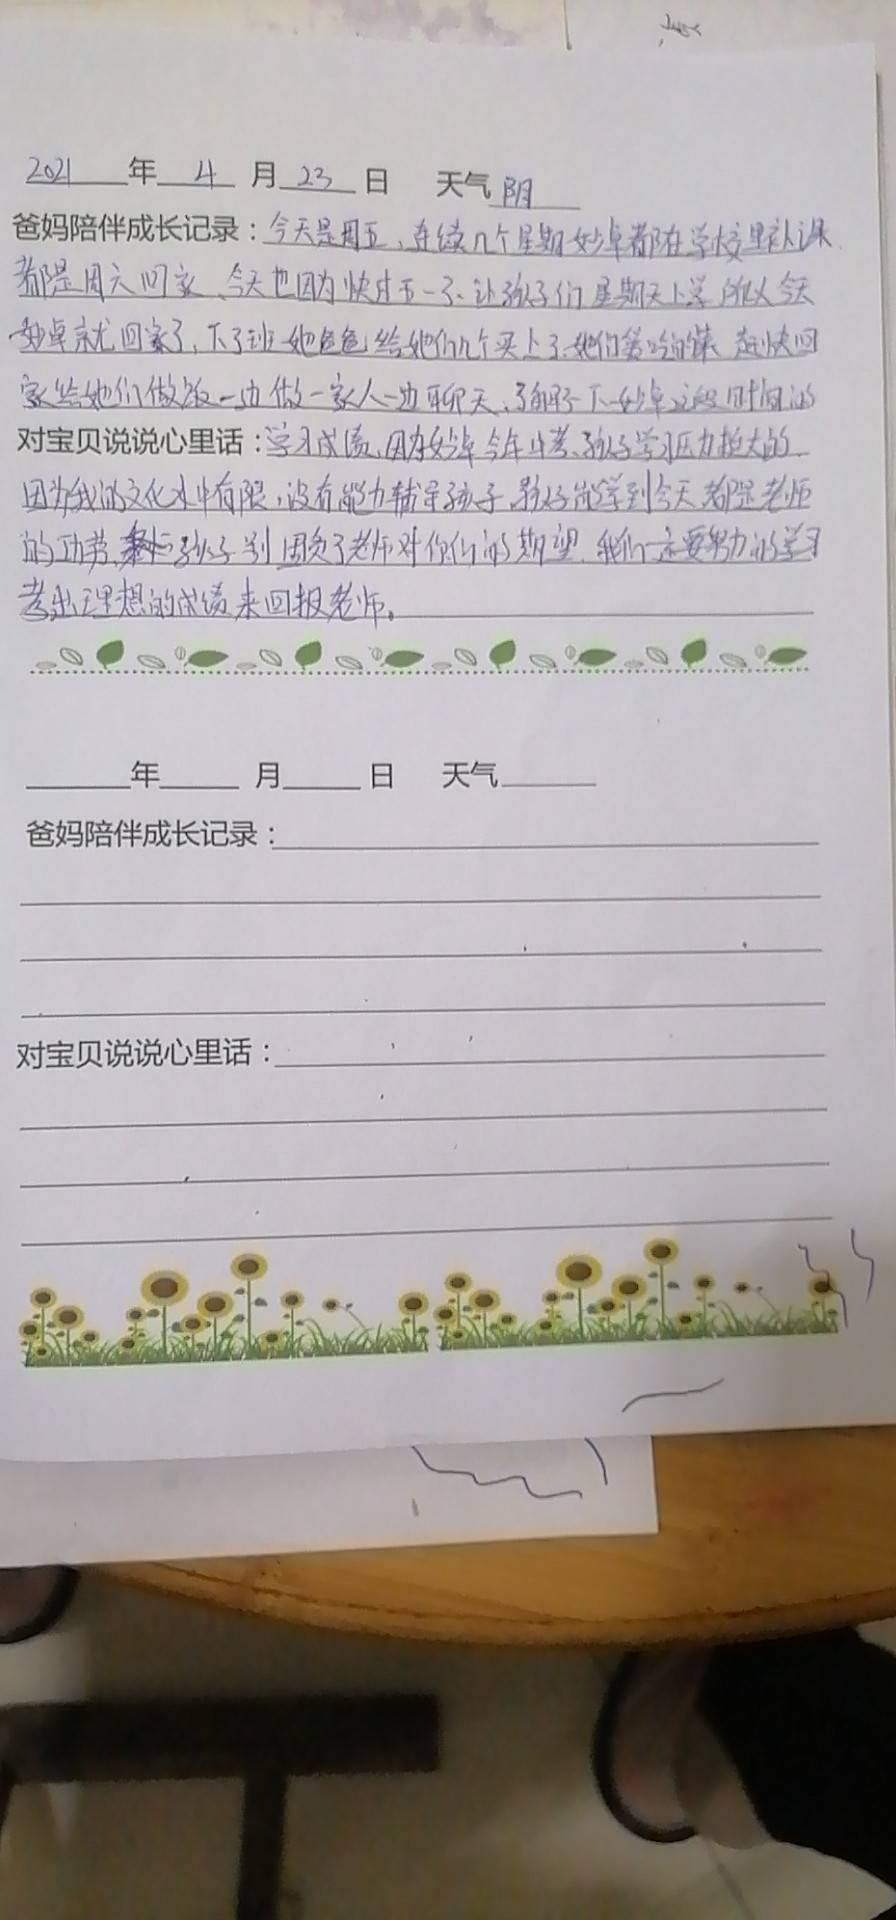 2021年 4 月 23 日 天气 阴
爸妈陪伴成长记录：今天是周五、连续几个星期妙卓都在学校里补课
都是周六回家、今天也因为快过五一了、让孩子们星期天上学所以今天
妙卓就回家了，下了班她爸爸给她们几个买上了她们爱吃的馍 赶快回
家给她们做饭一边做一家人一边聊天、了解了下妙卓这段时间的
对宝贝说说心里话：学习成绩，因为妙卓今年中考、孩子学习压力挺大的
因为我的文化水平有限，没有能力辅导孩子 孩子能学到今天都是老师
的功劳、孩子别 辜负了老师对你们的期望 我们一定要努力的学习
考出理想的成绩来回报老师。
年 月 日 天气
爸妈陪伴成长记录：
对宝贝说说心里话：